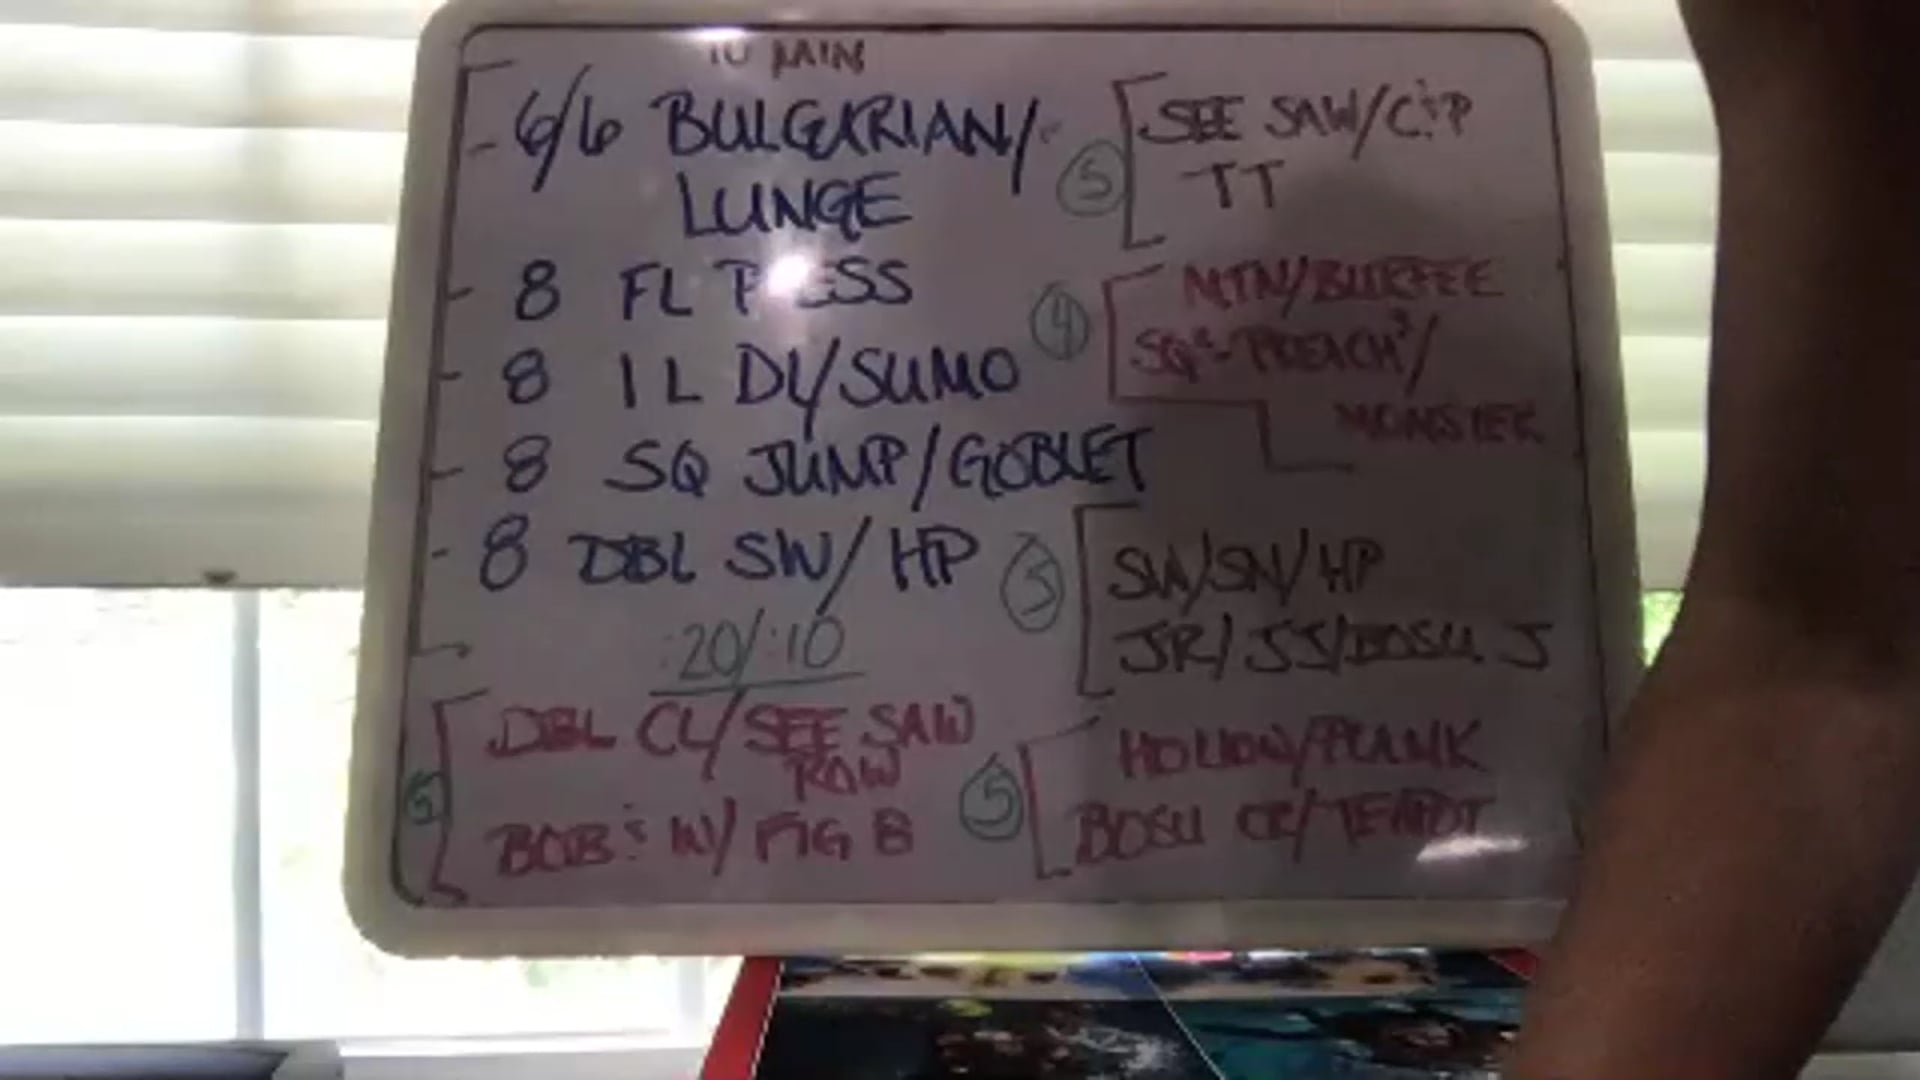 10 MIN
- 6/6 BULGARIAN/
LUNGE
- 8 FL PRESS
- 8 1 L DL/SUMO
- 8 SQ JUMP/GOBLET
- 8 DBL SW/HP
:20/:10
DBL CL/SEE SAW
ROW
5
BOB'S W/ FIG 8
SEE SAW/C+P
5
TT
MTN/BURPEE
4
SQ
MONSTER
SW/SN/HP
3
JR/JJ/BOSU J
HOLLOW/PLANK
5
BOSU CR/TEAPOT